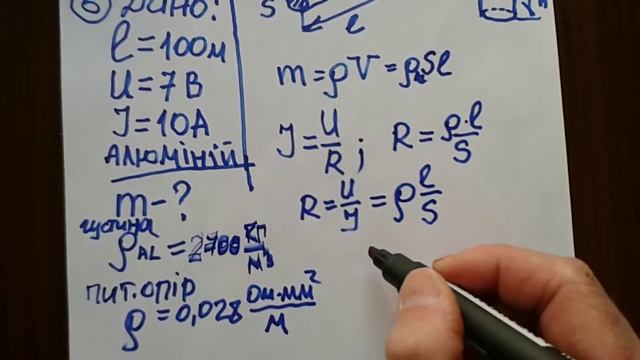 6 Дано:
l = 100м
U = 7В
J = 10А
Алюміній
m - ?
густина
ρAL = 2700 кг/м³
пит. опір
ρ = 0,028 Ом·мм²/м
S
l
m = ρV = ρSl
J = U/R ; R = ρ·l/S
R = U/J = ρ l/S